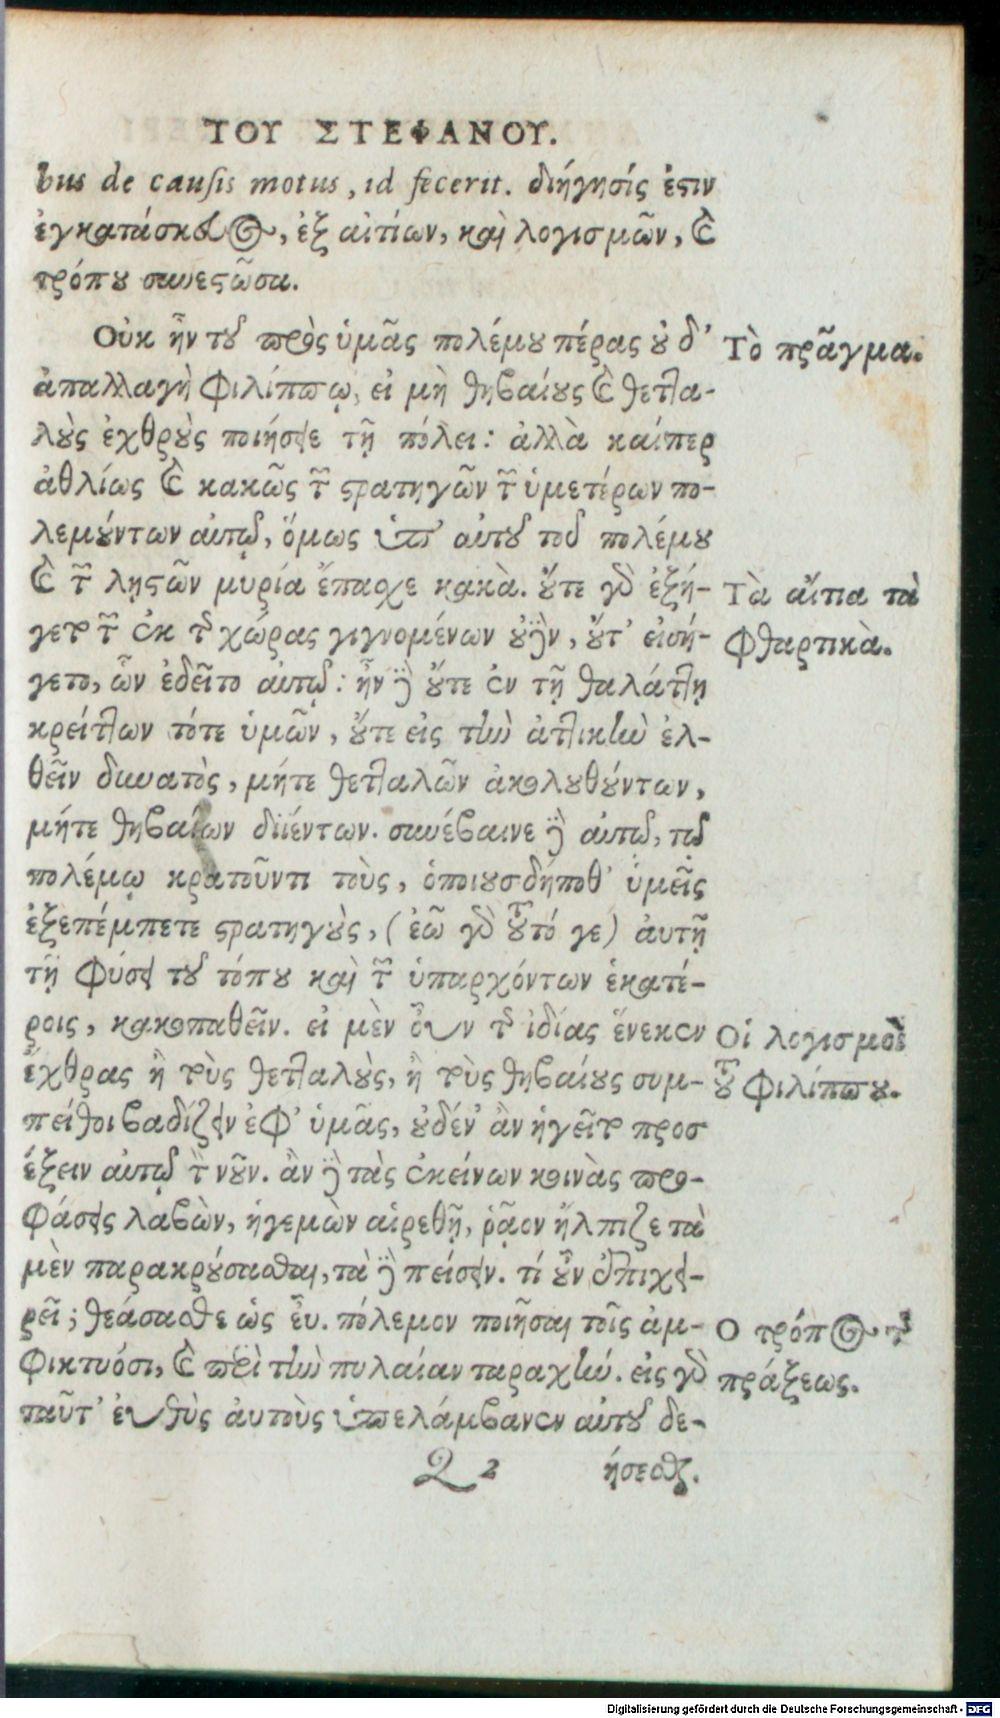 ΤΟΥ ΣΤΕΦΑΝΟΥ.
bus de causis motus, id fecerit. διήγησίς ἐστιν
ἐγκατάσκευος, ἐξ αἰτίων, καὶ λογισμῶν, καὶ
τρόπου συνεστῶσα.
Οὐκ ἦν τοῦ πρὸς ὑμᾶς πολέμου πέρας οὐδ'
ἀπαλλαγὴ Φιλίππῳ, εἰ μὴ θηβαίους καὶ θεττα-
λοὺς ἐχθροὺς ποιήσειε τῇ πόλει: ἀλλὰ καίπερ
ἀθλίως καὶ κακῶς τῶν στρατηγῶν τῶν ὑμετέρων πο-
λεμούντων αὐτῷ, ὅμως ὑπ' αὐτοῦ τοῦ πολέμου
καὶ τῶν λῃστῶν μυρία ἔπασχε κακὰ. οὔτε γὰρ ἐξή-
γετο τῶν ἐκ τῆς χώρας γιγνομένων οὐδὲν, οὔτ' εἰσή-
γετο, ὧν ἐδεῖτο αὐτῷ: ἦν δὲ οὔτε ἐν τῇ θαλάττῃ
κρείττων τότε ὑμῶν, οὔτε εἰς τὴν ἀττικὴν ἐλ-
θεῖν δυνατὸς, μήτε θετταλῶν ἀκολουθούντων,
μήτε θηβαίων διϊέντων. συνέβαινε δὲ αὐτῷ, τῷ
πολέμῳ κρατοῦντι τοὺς, ὁποιουσδήποθ' ὑμεῖς
ἐξεπέμπετε στρατηγοὺς, (ἐῶ γὰρ τοῦτό γε) αὐτῇ
τῇ φύσει τοῦ τόπου καὶ τῶν ὑπαρχόντων ἑκατέ-
ροις, κακοπαθεῖν. εἰ μὲν οὖν τῆς ἰδίας ἕνεκεν
ἔχθρας ἢ τοὺς θετταλοὺς, ἢ τοὺς θηβαίους συμ-
πείθοι βαδίζειν ἐφ' ὑμᾶς, οὐδέν' ἂν ἡγεῖτο προσ
έξειν αὐτῷ τὸν νοῦν. ἂν δὲ τὰς ἐκείνων κοινὰς προ-
φάσεις λαβὼν, ἡγεμὼν αἱρεθῇ, ῥᾷον ἤλπιζε τὰ
μὲν παρακρούσασθαι, τὰ δὲ πείσειν. τί οὖν ἐπιχει-
ρεῖ; θεάσασθε ὡς εὖ. πόλεμον ποιῆσαι τοῖς ἀμ-
φικτυόσι, καὶ περὶ τὴν πυλαίαν ταραχήν. εἰς γὰρ
ταῦτ' εὐθὺς αὐτοὺς ὑπελάμβανεν αὐτοῦ δε-
Q 2 ήσεσθαι.
Τὸ πρᾶγμα.
Τὰ αἴτια τὰ
φθαρτικὰ.
Οἱ λογισμοὶ
τοῦ Φιλίππου.
Ο τρόπος τῆς
πράξεως.
Digitalisierung gefördert durch die Deutsche Forschungsgemeinschaft - DFG